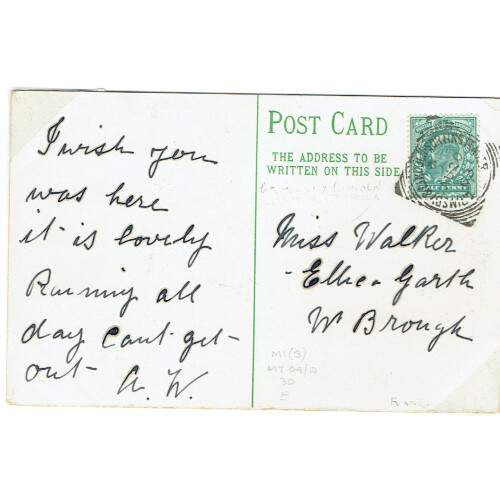 I wish you
was here
it is lovely
Raining all
day cant get
out A. W.
POST CARD
THE ADDRESS TO BE
WRITTEN ON THIS SIDE
HALF PENNY
Miss Walker
Garth
W Brough
M1(3)
30